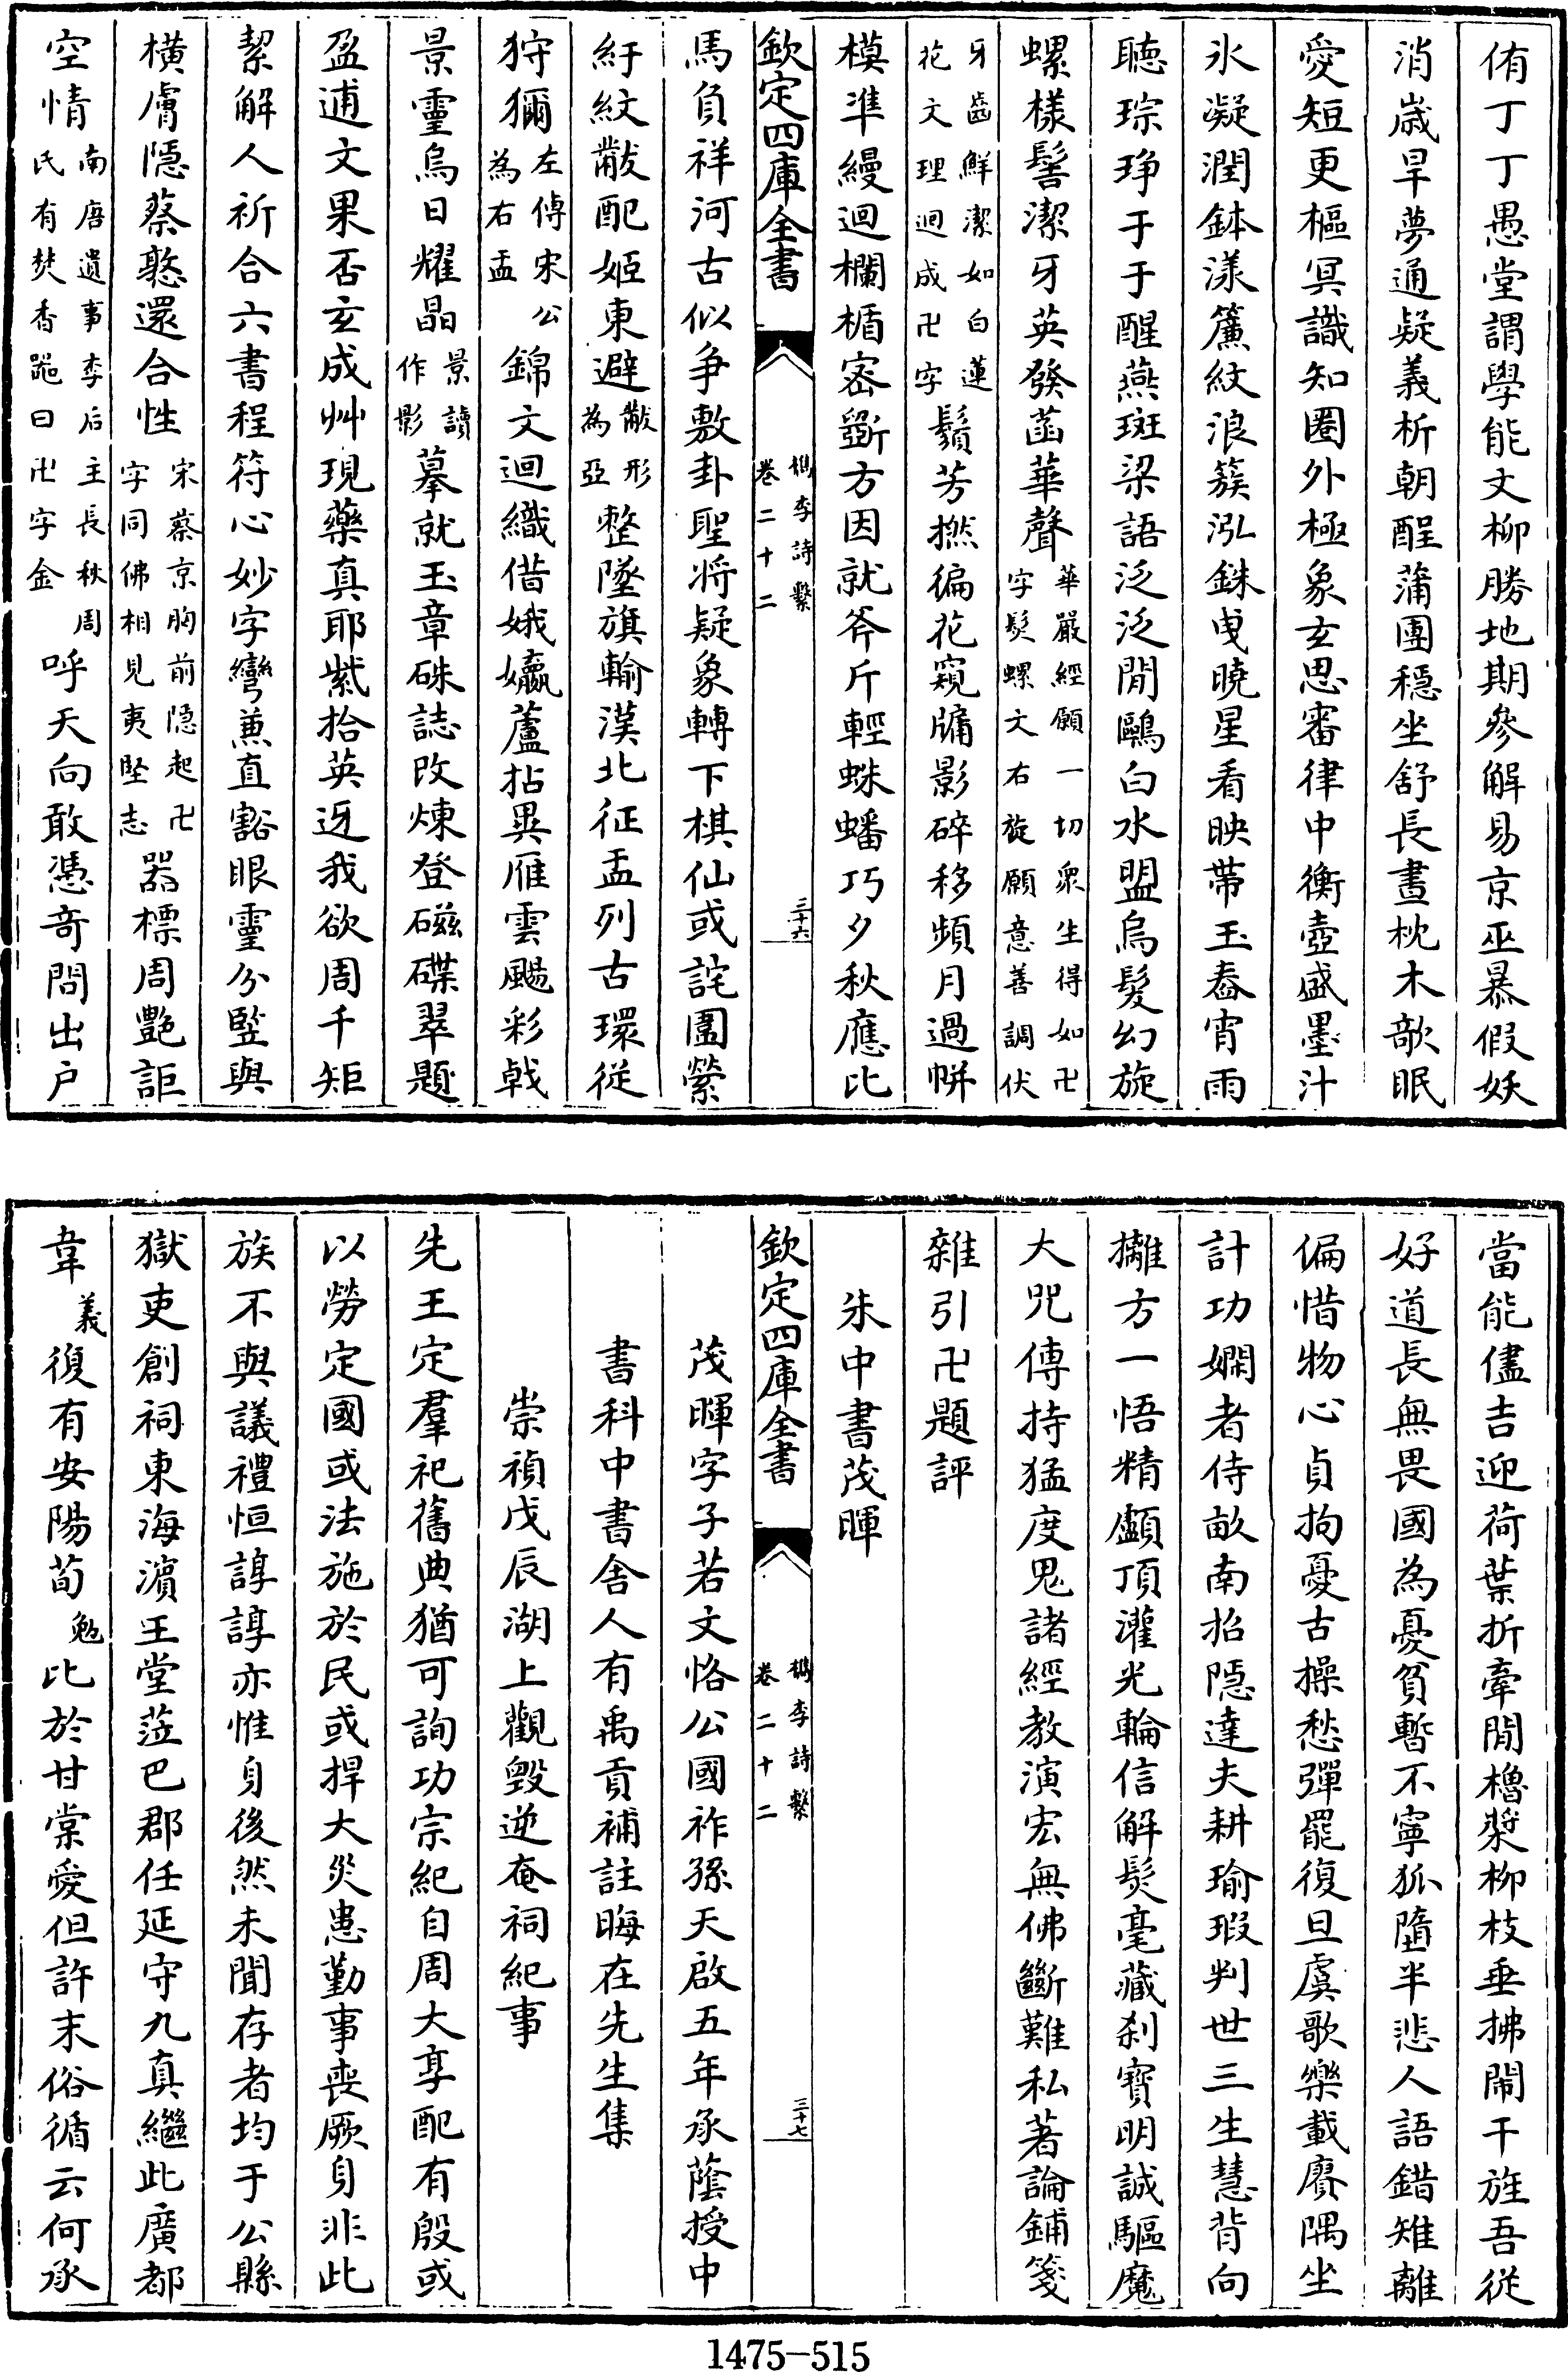 侑丁丁愚堂謂學能文柳勝地期參解易京巫暴假妖
消嵗旱夢通疑義析朝酲蒲團穩坐舒長晝枕木欹眠
愛短更樞冥識知圈外極象玄思審律中衡壺盛墨汁
氷凝潤鉢漾簾紋浪簇泓銖曵曉星看映帶玉舂宵雨
聽琮琤于于醒燕斑梁語泛泛閒鷗白水盟烏髮幻旋
螺樣髻潔牙英發菡華聲
華嚴經願一切衆生得如卍
字髮螺文右旋願意善調伏
牙齒鮮潔如白蓮
花文理迴成卍字
鬚芳撚徧花窺牖影碎移頻月過帡
模準縵迴欄楯密斲方因就斧斤輕蛛蟠巧夕秋應比
欽定四庫全書
檇李詩繫
卷二十二
三十六
馬負祥河古似爭敷卦聖將疑象轉下棋仙或詫圍縈
紆紋黻配姬東避
黻形
為亞
整墜旗輸漢北征盂列古環從
狩獮
左傳宋公
為右盂
錦文迴織借娥孀蘆拈異雁雲颺彩戟
景靈烏日耀晶
景讀
作影
摹就玉章硃誌改煉登磁碟翠題
盈逋文果否玄成艸現藥真耶紫拾英迓我欲周千矩
絜解人祈合六書程符心妙字彎兼直豁眼靈分竪與
橫膚隱蔡憝還合性
宋蔡京胸前隱起卍
字同佛相見夷堅志
器標周艷詎
空情
南唐遺事李后主長秋周
氏有焚香器曰卍字金
呼天向敢憑竒問出户
當能儘吉迎荷葉折牽閒櫓槳柳枝垂拂鬧干旌吾從
好道長無畏國為憂貧暫不寧狐墮半悲人語錯雉離
偏惜物心貞拘憂古操愁彈罷復旦虞歌樂載賡隅坐
計功嫻者侍畝南招隱達夫耕瑜瑕判世三生慧背向
攤方一悟精顱頂灌光輪信解髮毫藏刹寶明誠驅魔
大咒傳持猛度鬼諸經教演宏無佛斷難私著論鋪箋
雜引卍題評
朱中書茂暉
欽定四庫全書
檇李詩繫
卷二十二
三十七
茂暉字子若文恪公國祚孫天啟五年承蔭授中
書科中書舍人有禹貢補註晦在先生集
崇禎戊辰湖上觀毀逆奄祠紀事
先王定羣祀舊典猶可詢功宗紀自周大享配有殷或
以勞定國或法施於民或捍大災患勤事喪厥身非此
族不與議禮恒諄諄亦惟身後然未聞存者均于公縣
獄吏創祠東海濵王堂蒞巴郡任延守九真繼此廣都
韋
義
復有安陽荀
勉
比於甘棠愛但許末俗循云何承
1475-515